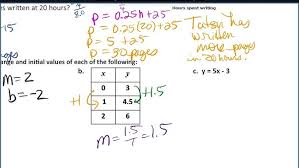 es written at 20 hours?
Hours spent writing
p = 0.25h + 25
p = 0.25(20) + 25
p = 5 + 25
p = 30 pages
Tatsen has
written
more pages
in 20 hours.
ange and initial values of each of the following:
m = 2
b = -2
x y
0 3
1 4.5
2 6
+1
+1.5
m = 1.5/1 = 1.5
c. y = 5x - 3